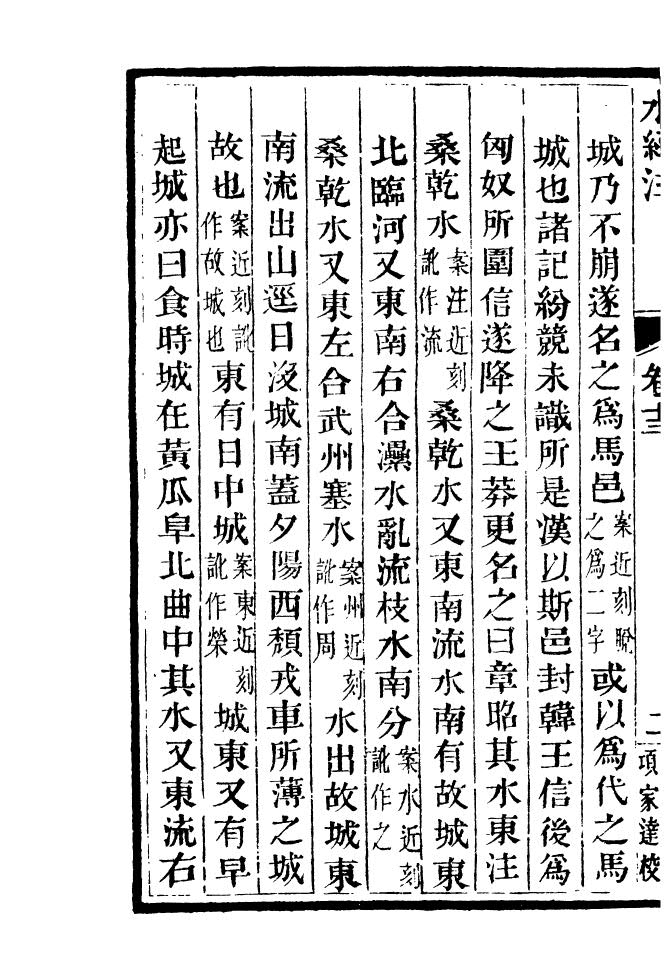 水經注 卷十三 二 項家達校
城乃不崩遂名之爲馬邑案近刻脫之爲二字或以爲代之馬
城也諸記紛競未識所是漢以斯邑封韓王信後爲
匈奴所圍信遂降之王莽更名之曰章昭其水東注
桑乾水案注近刻訛作流桑乾水又東南流水南有故城東
北臨河又東南右合㶟水亂流枝水南分案水近刻訛作之
桑乾水又東左合武州塞水案州近刻訛作周水出故城東
南流出山逕日沒城南蓋夕陽西頹戎車所薄之城
故也案近刻訛作故城也東有日中城案東近刻訛作榮城東又有早
起城亦曰食時城在黃瓜阜北曲中其水又東流右